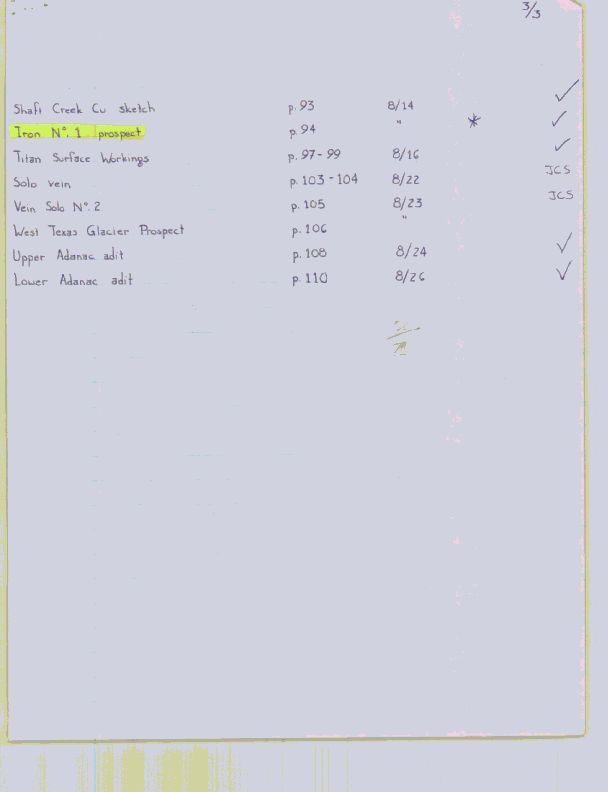 3/3
Shaft Creek Cu sketch p. 93 8/14 ✓
Iron Nº. 1 prospect p. 94 " * ✓
Titan Surface Workings p. 97-99 8/16 ✓
Solo vein p. 103-104 8/22 JCS
Vein Solo Nº. 2 p. 105 8/23 JCS
West Texas Glacier Prospect p. 106 "
Upper Adanac adit p. 108 8/24 ✓
Lower Adanac adit p. 110 8/26 ✓